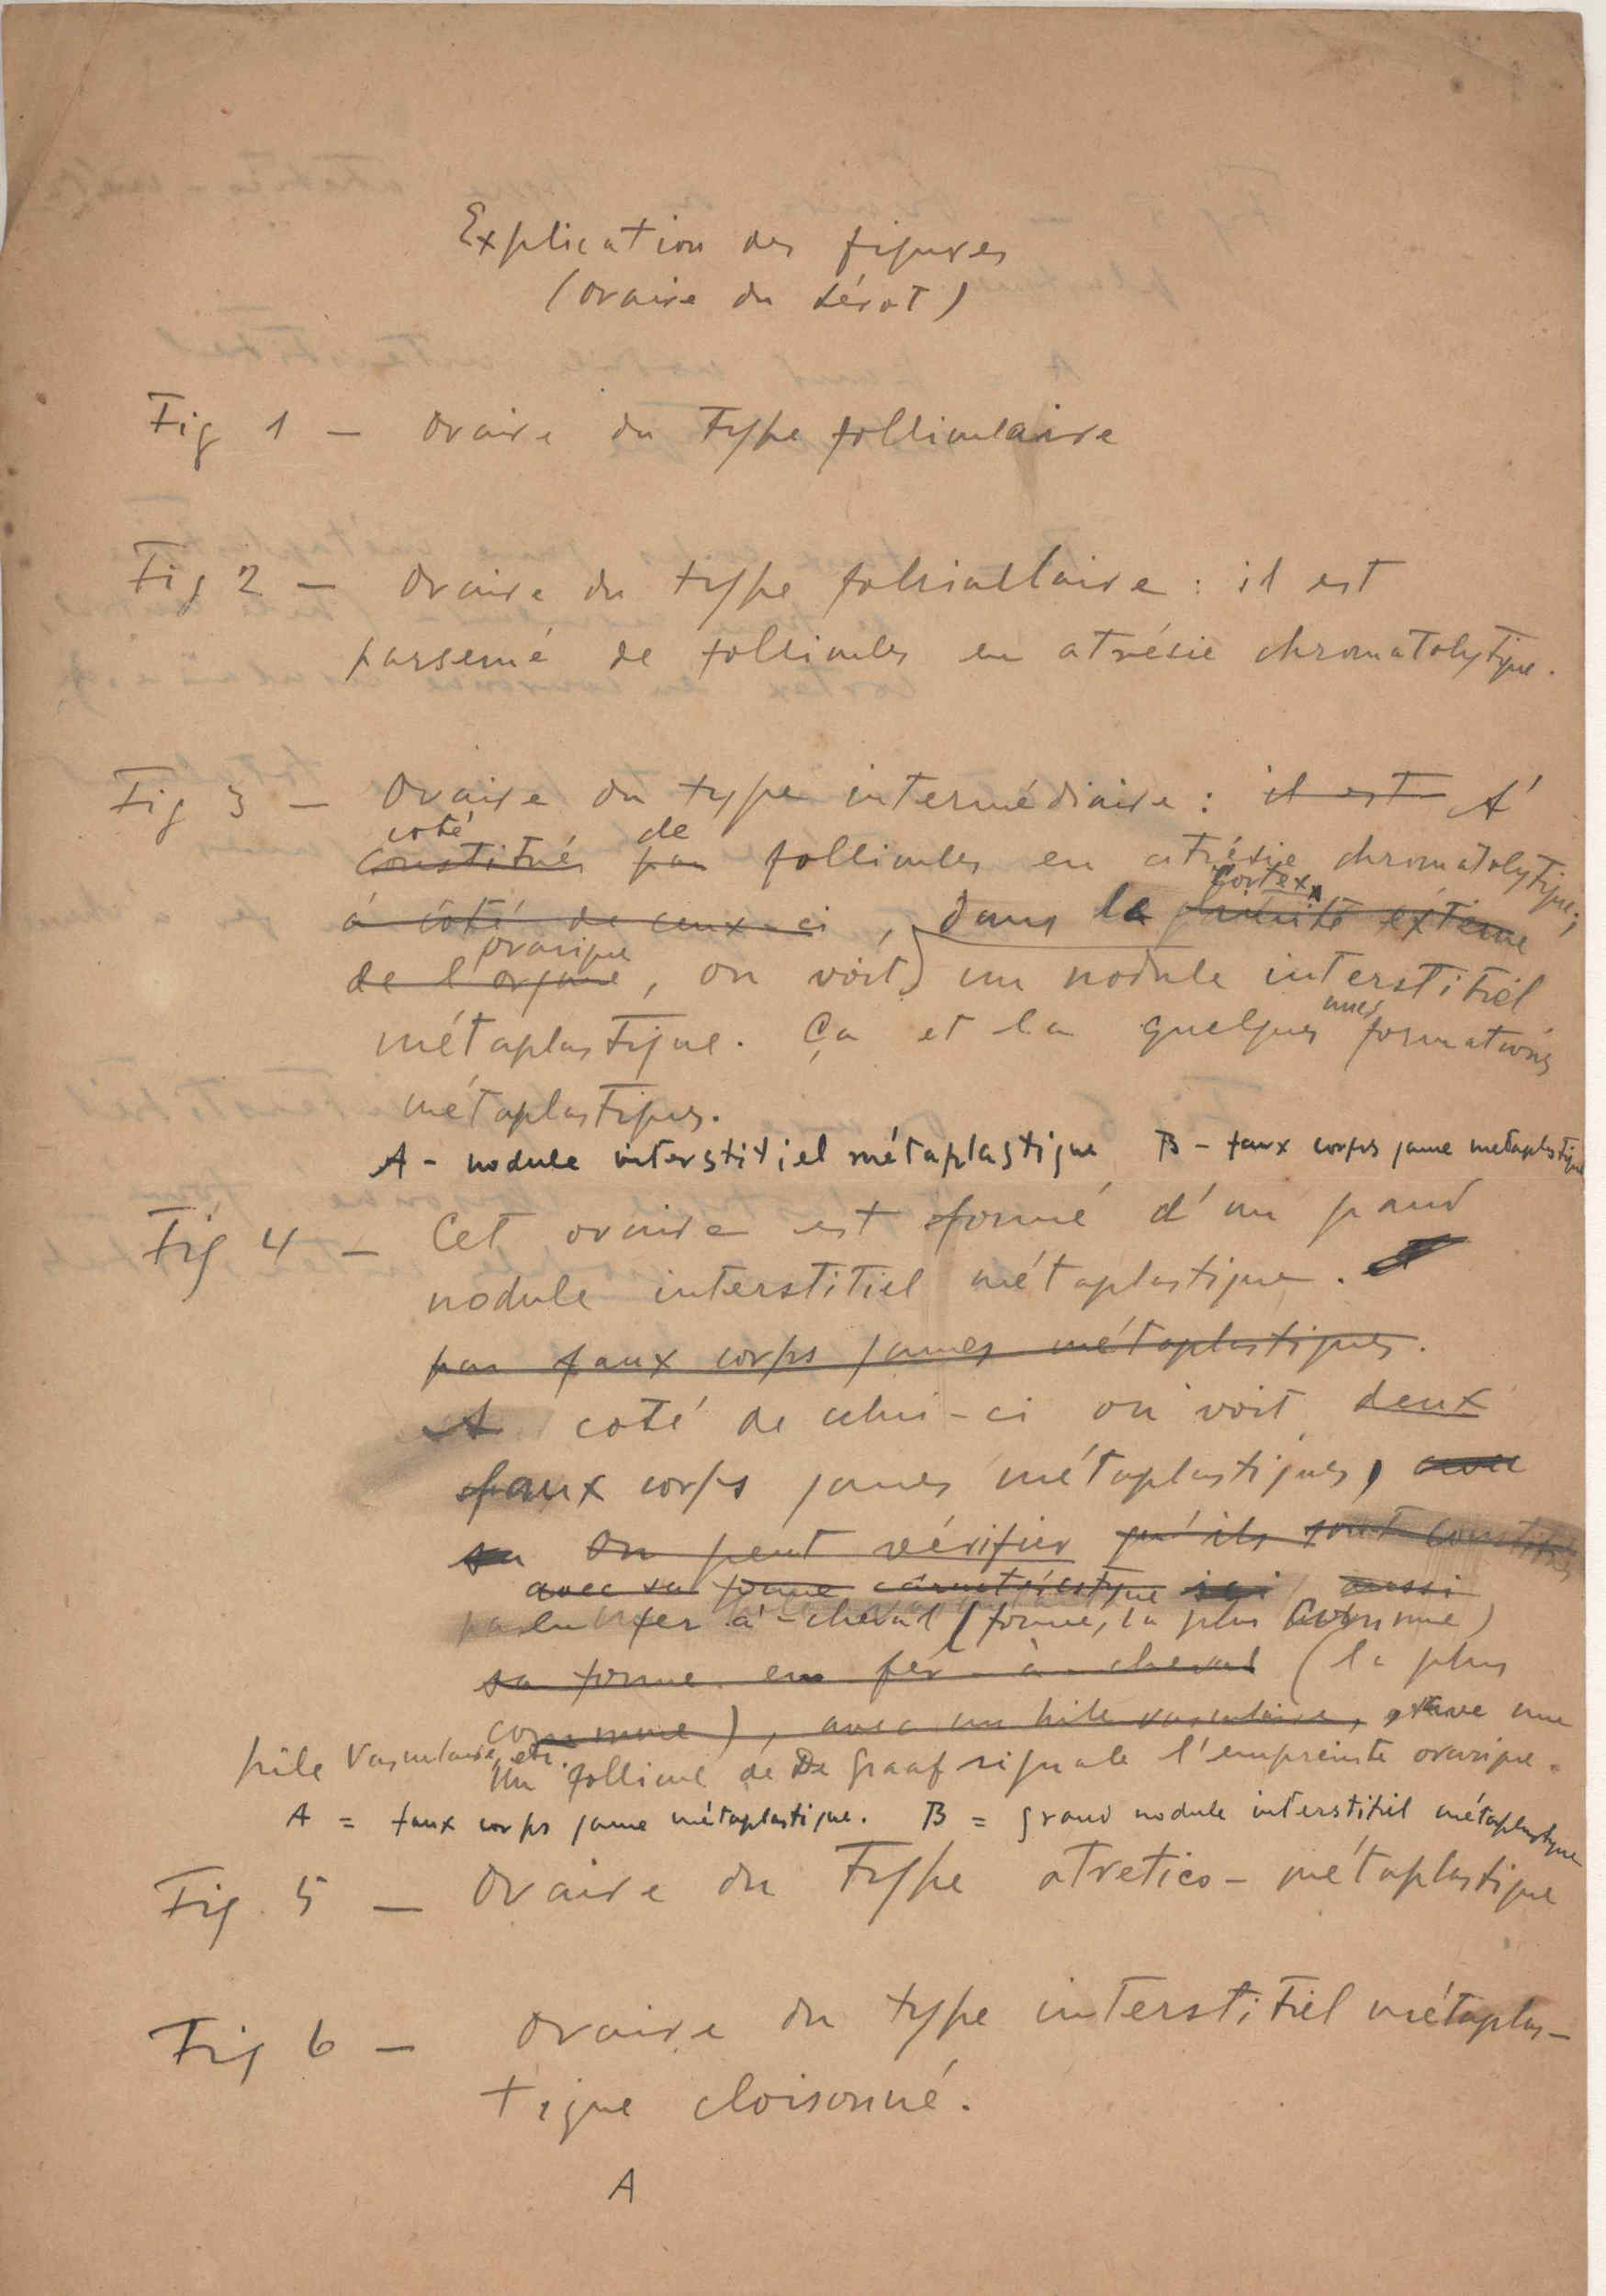 Explication des figures
(ovaire du lérot)
Fig 1 — Ovaire du type folliculaire
Fig 2 — Ovaire du type folliculaire : il est
parsemé de follicules en atrésie chromatolytique.
Fig 3 — Ovaire du type intermédiaire : il est A'
coté de
constitués par follicules en atrésie chromatolytique;
cortex
à côté de ceux-ci, dans la externe
ovarique
de l'organe, on voit) un nodule interstitiel
unes
métaplastique. Ça et la quelques formations
métaplastiques.
A - nodule interstitiel métaplastique B - faux corps jaune metaplastique
Fig 4 — Cet ovaire est formé d'un grand
nodule interstitiel métaplastique.
par faux corps jaunes métaplastiques.
A coté de celui-ci on voit deux
faux corps jaunes métaplastiques, avec
sa On peut vérifier qu'ils sont constitués
avec sa forme caractéristique ici aussi
en fer à-cheval (forme, la plus commune)
sa forme en fer-à-cheval (la plus
commune), avec un hile vasculaire, avec une
hile vasculaire, etc.
Un follicul de De Graaf signale l'empreinte ovarique.
A = faux corps jaune métaplastique. B = grand nodule interstitiel métaplastique
Fig. 5 — Ovaire du Type atretico-métaplastique
Fig 6 — Ovaire du type interstitiel métaplas-
tique cloisonné.
A